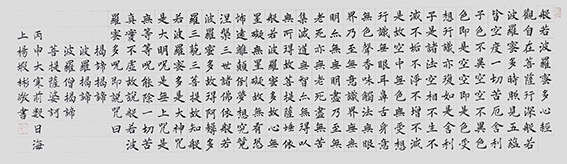 般若波羅蜜多心經
觀自在菩薩行深般若
波羅蜜多時照見五蘊
皆空度一切苦厄舍利
子色不異空空不異色
色即是空空即是色受
想行識亦復如是舍利
子是諸法空相不生不
滅不垢不淨不增不減
是故空中無色無受想
行識無眼耳鼻舌身意
無色聲香味觸法無眼
界乃至無意識界無無
明亦無無明盡乃至無
老死亦無老死盡無苦
集滅道無智亦無得以
無所得故菩提薩埵依
般若波羅蜜多故心無
罣礙無罣礙故無有恐
怖遠離顛倒夢想究竟
涅槃三世諸佛依般若
波羅蜜多故得阿耨多
羅三藐三菩提故知般
若波羅蜜多是大神咒
是大明咒是無上咒是
無等等咒能除一切苦
真實不虛故說般若波
羅蜜多咒即說咒曰
揭諦揭諦
波羅揭諦
波羅僧揭諦
菩提薩婆訶
丙申大寒前數日海
上楊彬敬書